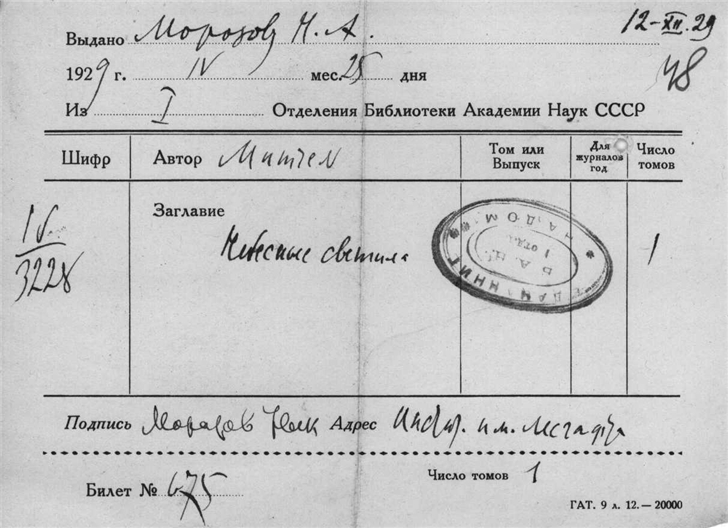 12-XII.29
Выдано Морозову Н. А.
1929 г. IV мес. 25 дня
48
Из I Отделения Библиотеки Академии Наук СССР
Шифр Автор Митчел Том или Выпуск Для журналов год Число томов
IV
3228
Заглавие
Небесные светила
1
НА ДОМ
Б. А. Н.
1 ОТД.
Подпись Морозов Ник Адрес Инст. им. Лесгафта
Билет № 675 Число томов 1
ГАТ. 9 л. 12.—20000